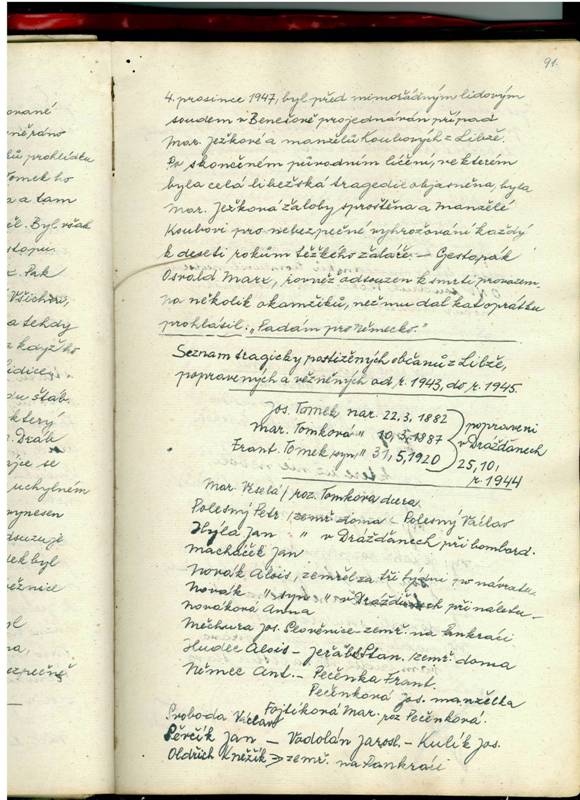 91.
4. prosince 1947, byl před mimořádným lidovým
soudem v Benešově projednáván případ
Mar. Ježkové a manželů Koubových z Libže.
Po skončeném původním líčení, ve kterém
byla celá libežská tragedie objasněna, byla
Mar. Ježková žaloby sproštěna a manželé
Koubovi pro nebezpečné vyhrožování každý
k deseti rokům těžkého žaláře. — Gestapák
Osvald Marx, rovněž odsouzen k smrti provazem,
na několik okamžiků, než mu dal kat oprátku
prohlásil: „Padám pro Německo."
Seznam tragicky postižených občanů z Libže,
popravených a vězněných od r. 1943, do r. 1945.
Jos. Tomek nar. 22, 3, 1882
Mar. Tomková " 10, 3, 1887
Frant. Tomek syn " 31, 5, 1920
popraveni
v Drážďanech
25, 10,
r. 1944
Mar. Veselá / roz. Tomkova dcera
Polesný Petr / zemř. doma — Polesný Václav
Hýla Jan " v Drážďanech při bombard.
Macháček Jan
Novák Alois, zemřel za tři týdny po návratu
Novák " syn " v Drážďanech při náletu —
Nováková Anna
Měchura Jos. Slověnice zemř. na Pankráci
Hudec Alois — Jeřábek Stan. / zemř. doma
Němec Ant. — Pečenka Frant.
Pečenková Jos. manželka
Fojtíková Mar. roz Pečenková.
Svoboda Václav
Pěrčík Jan — Vadolán Jarosl. — Kulík Jos.
Oldřich Kněžík zemř. na Pankráci
ované
prohlídka
Tomek ho
a a tam
Byl však
Pak
Všichni,
a tehdy
když ho
štáb.
který
Dráb
se
uchylném
vynesen
dek byl
ěznice
na
ezpečně